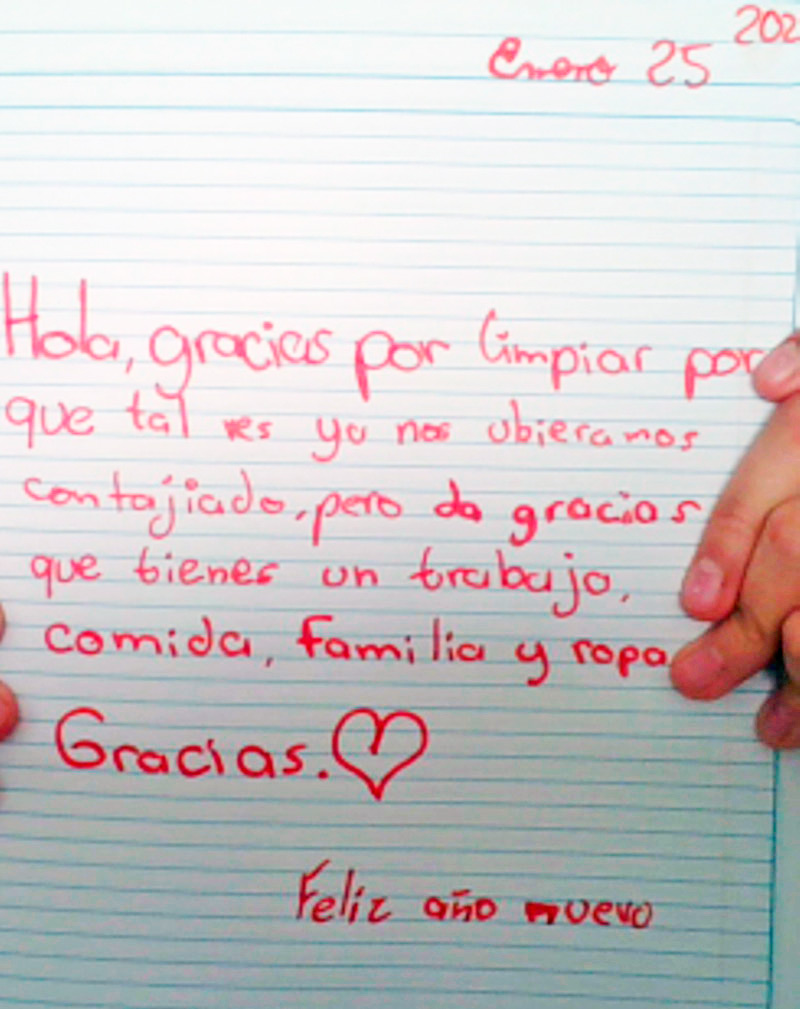 Enero 25 202
Hola, gracias por limpiar por
que tal ves ya nos ubieramos
contajiado, pero da gracias
que tienes un trabajo,
comida, familia y ropa
Gracias.
Feliz año nuevo